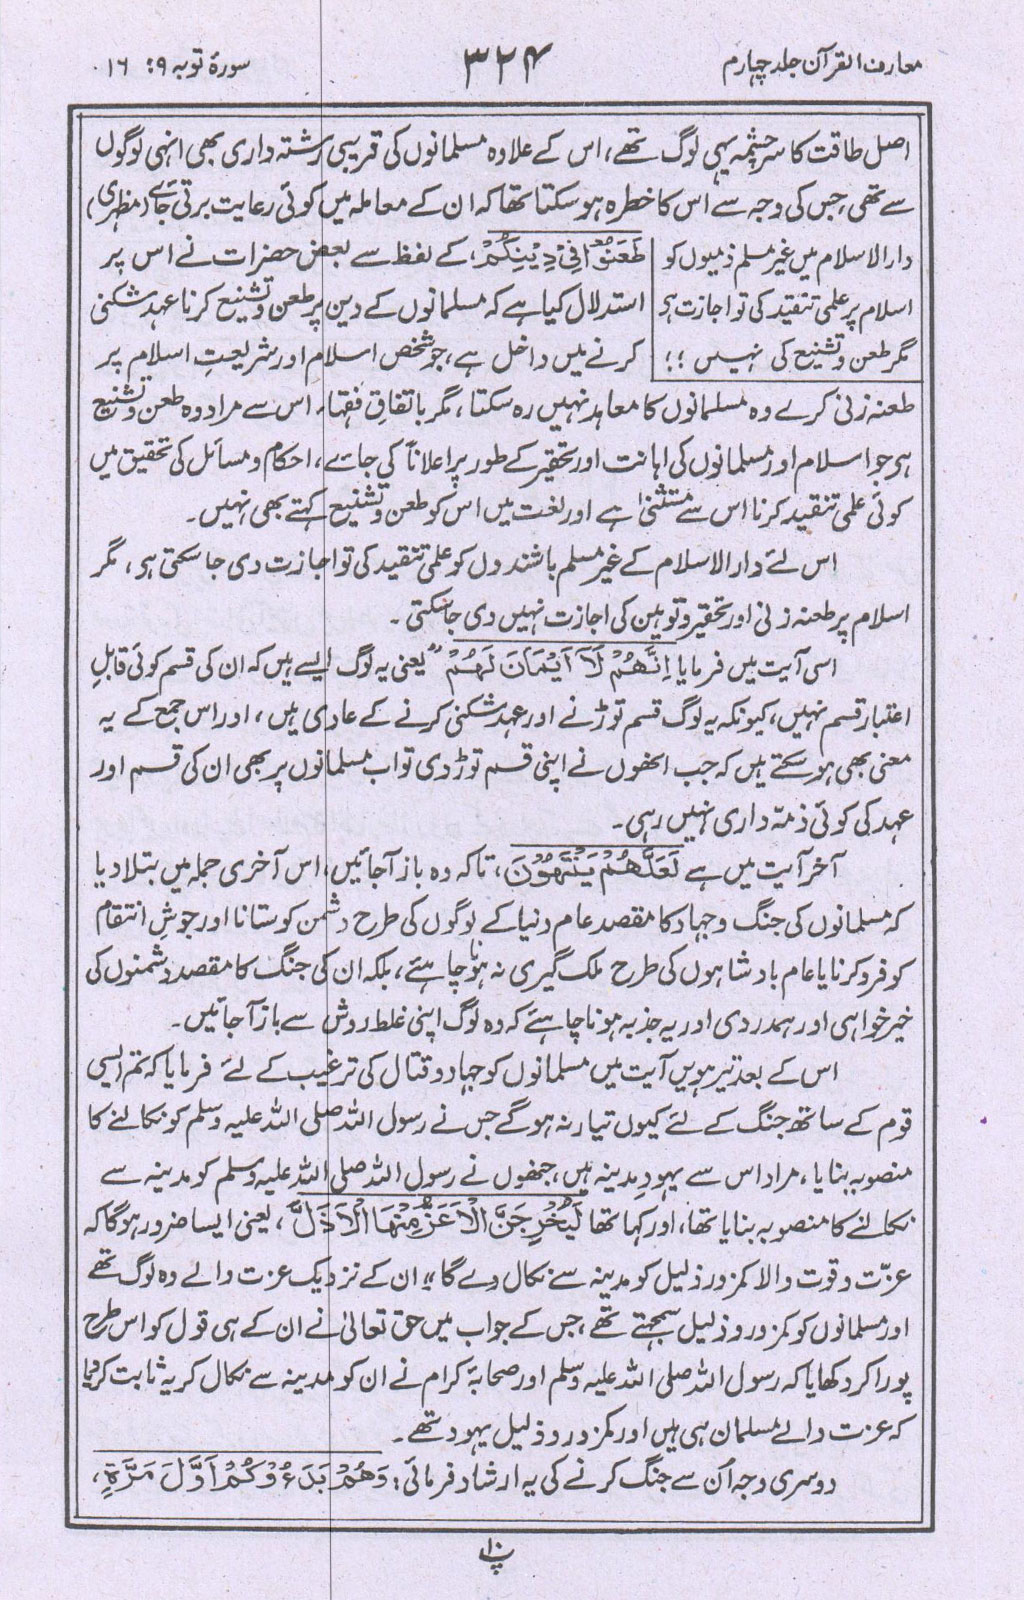 معارف القرآن جلد چہارم
۳۲۴
سورۂ توبہ ۹: ۱۶
اصل طاقت کا سرچشمہ یہی لوگ تھے، اس کے علاوہ مسلمانوں کی قریبی رشتہ داری بھی انہی لوگوں
سے تھی، جس کی وجہ سے اس کا خطرہ ہوسکتا تھا کہ ان کے معاملہ میں کوئی رعایت برتی جائے (مظہری)
دار الاسلام میں غیر مسلم ذمیوں کو
اسلام پر علمی تنقید کی تو اجازت ہے
مگر طعن و تشنیع کی نہیں !!
طَعَنُوْا فِیْ دِیْنِکُمْ، کے لفظ سے بعض حضرات نے اس پر
استدلال کیا ہے کہ مسلمانوں کے دین پر طعن و تشنیع کرنا عہد شکنی
کرنے میں داخل ہے، جو شخص اسلام اور شریعتِ اسلام پر
طعنہ زنی کرے وہ مسلمانوں کا معاہد نہیں رہ سکتا، مگر باتفاقِ فقہاء اس سے مراد وہ طعن و تشنیع
ہی جو اسلام اور مسلمانوں کی اہانت اور تحقیر کے طور پر اعلاناً کی جائے، احکام و مسائل کی تحقیق میں
کوئی علمی تنقید کرنا اس سے مستثنیٰ ہے اور لغت میں اس کو طعن و تشنیع کہتے بھی نہیں۔
اس لئے دار الاسلام کے غیر مسلم باشندوں کو علمی تنقید کی تو اجازت دی جاسکتی ہی، مگر
اسلام پر طعنہ زنی اور تحقیر و توہین کی اجازت نہیں دی جاسکتی۔
اسی آیت میں فرمایا اِنَّھُمْ لَآ اَیْمَانَ لَھُمْ" یعنی یہ لوگ ایسے ہیں کہ ان کی قسم کوئی قابلِ
اعتبار قسم نہیں، کیونکہ یہ لوگ قسم توڑنے اور عہد شکنی کرنے کے عادی ہیں، اور اس جمع کے یہ
معنی بھی ہوسکتے ہیں کہ جب انھوں نے اپنی قسم توڑ دی تو اب مسلمانوں پر بھی ان کی قسم اور
عہد کی کوئی ذمہ داری نہیں رہی۔
آخر آیت میں ہے لَعَلَّھُمْ یَنْتَھُوْنَ، تاکہ وہ باز آجائیں، اس آخری جملہ میں بتلا دیا
کہ مسلمانوں کی جنگ و جہاد کا مقصد عام دنیا کے لوگوں کی طرح دشمن کو ستانا اور جوشِ انتقام
کو فرو کرنا یا عام بادشاہوں کی طرح ملک گیری نہ ہونا چاہئے، بلکہ ان کی جنگ کا مقصد دشمنوں کی
خیر خواہی اور ہمدردی اور یہ جذبہ ہونا چاہئے کہ وہ لوگ اپنی غلط روش سے باز آجائیں۔
اس کے بعد تیرہویں آیت میں مسلمانوں کو جہاد و قتال کی ترغیب کے لئے فرمایا کہ تم ایسی
قوم کے ساتھ جنگ کے لئے کیوں تیار نہ ہوگے جس نے رسول اللہ صلی اللہ علیہ وسلم کو نکالنے کا
منصوبہ بنایا، مراد اس سے یہودِ مدینہ ہیں، جنھوں نے رسول اللہ صلی اللہ علیہ وسلم کو مدینہ سے
نکالنے کا منصوبہ بنایا تھا، اور کہا تھا لَیُخْرِجَنَّ الْاَعَزُّ مِنْھَا الْاَذَلَّ، یعنی ایسا ضرور ہوگا کہ
عزّت و قوت والا کمزور ذلیل کو مدینہ سے نکال دے گا" ان کے نزدیک عزت والے وہ لوگ تھے
اور مسلمانوں کو کمزور و ذلیل سمجھتے تھے، جس کے جواب میں حق تعالیٰ نے ان کے ہی قول کو اس طرح
پورا کر دکھایا کہ رسول اللہ صلی اللہ علیہ وسلم اور صحابۂ کرام نے ان کو مدینہ سے نکال کر یہ ثابت کردیا
کہ عزت والے مسلمان ہی ہیں اور کمزور و ذلیل یہود تھے۔
دوسری وجہ اُن سے جنگ کرنے کی یہ ارشاد فرمائی: وَھُمْ بَدَءُوْکُمْ اَوَّلَ مَرَّۃٍ،
پ۱۰